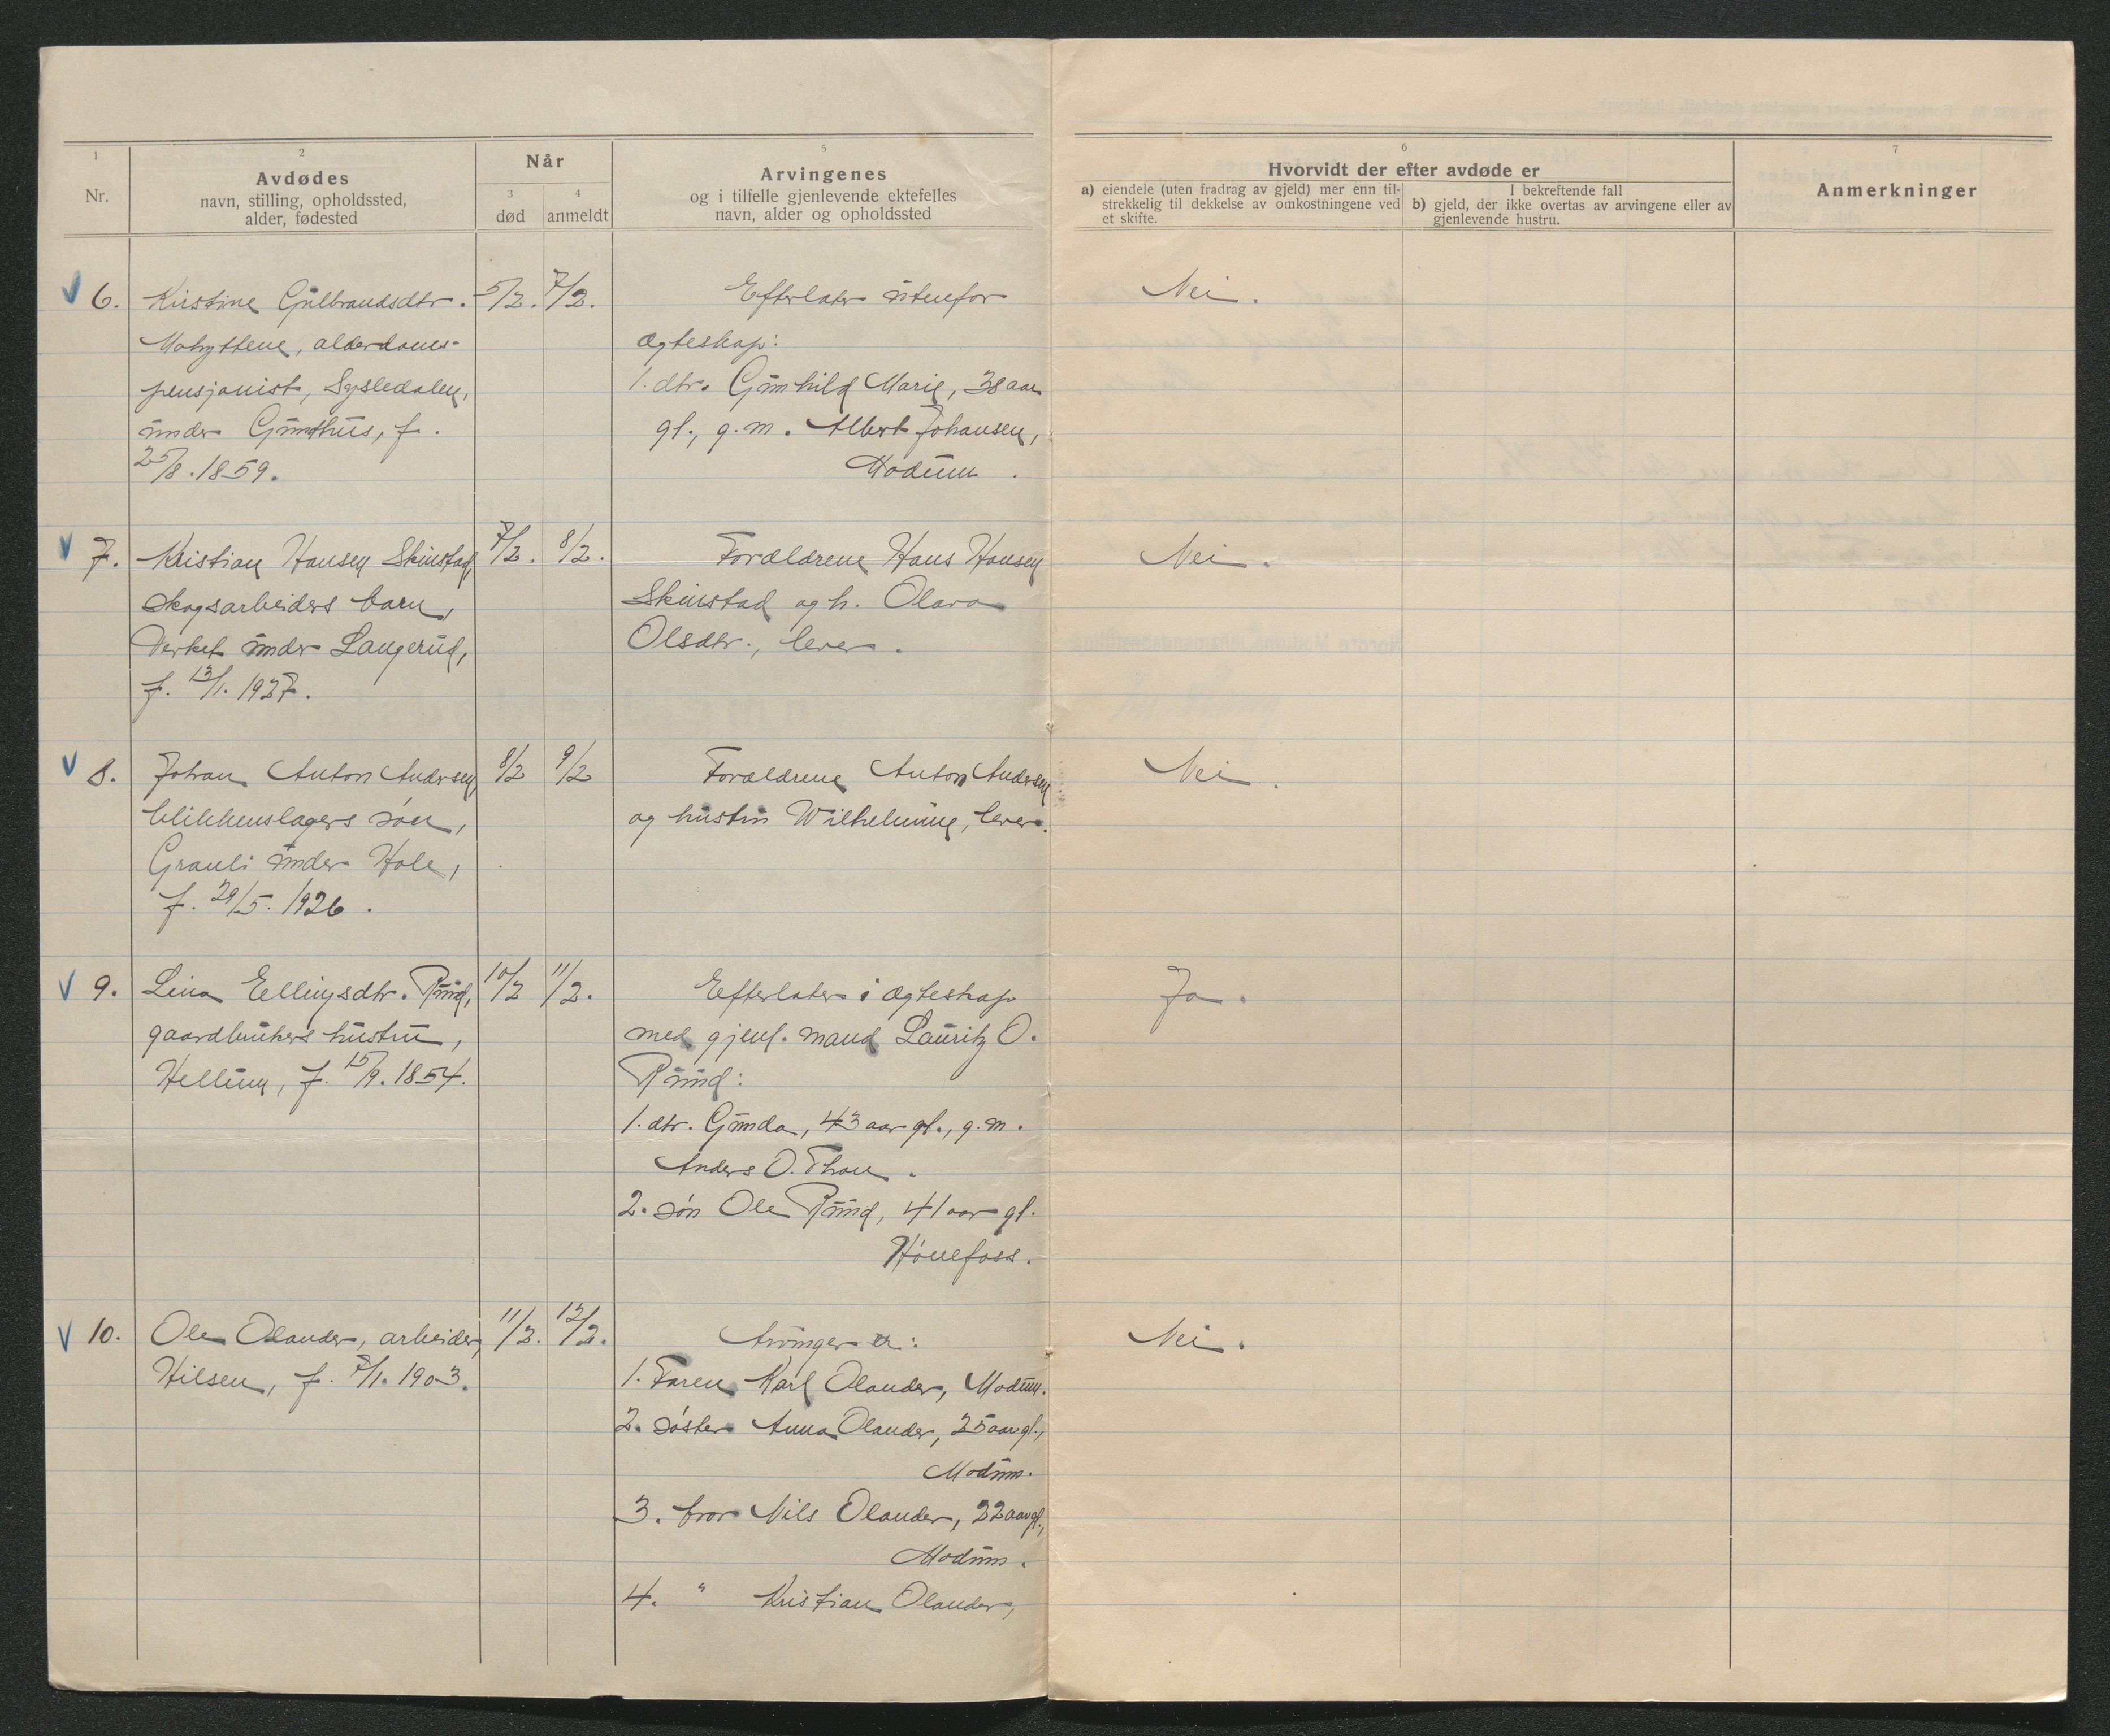 1
Nr.
2
Avdødes
navn, stilling, opholdssted,
alder, fødested
Når
3
død
4
anmeldt
5
Arvingenes
og i tilfelle gjenlevende ektefelles
navn, alder og opholdssted
6
Hvorvidt der efter avdøde er
a) eiendele (uten fradrag av gjeld) mer enn til-
strekkelig til dekkelse av omkostningene ved
et skifte.
I bekreftende fall
b) gjeld, der ikke overtas av arvingene eller av
gjenlevende hustru.
7
Anmerkninger
6. Kirstine Gulbrandsdtr.
Mohyttene, alderdoms-
pensjonist, Sysledalen,
under Gundhus, f.
25/8.1859.
5/2. 7/2.
Efterlater utenfor
ægteskap:
1. dtr. Gunhild Marie, 38 aar
gl., g.m. Albert Johansen,
Modum.
Nei.
7. Kristian Hansen Skinstad,
skogsarbeiders barn,
Verket under Langerud,
f. 12/1. 1927.
7/2. 8/2.
Forældrene Hans Hansen
Skinstad og h. Olava
Olsdtr., lever.
Nei.
8. Johan Anton Andersen,
blikkenslagers søn,
Grauli under Hole,
f. 29/5. 1926.
8/2 9/2
Forældrene Anton Andersen
og hustru Wilhelmine, lever.
Nei.
9. Lina Ellingsdtr. Ruud,
gaardbrukers hustru,
Hellum, f. 15/9. 1854.
10/2 11/2.
Efterlater i ægteskap
med gjenl. mand Lauritz O.
Ruud:
1. dtr. Gunda, 43 aar gl., g.m.
Anders O. Thon.
2. søn Ole Ruud, 41 aar gl.
Hønefoss.
Ja.
10. Ole Olander, arbeider,
Hilsen, f. 7/1. 1903.
11/2. 12/2.
Arvinger er:
1. Faren Karl Olander, Modum.
2. søster Anna Olander, 25 aar gl.,
Modum.
3. bror Nils Olander, 22 aar gl.,
Modum.
4. " Kristian Olander,
Nei.